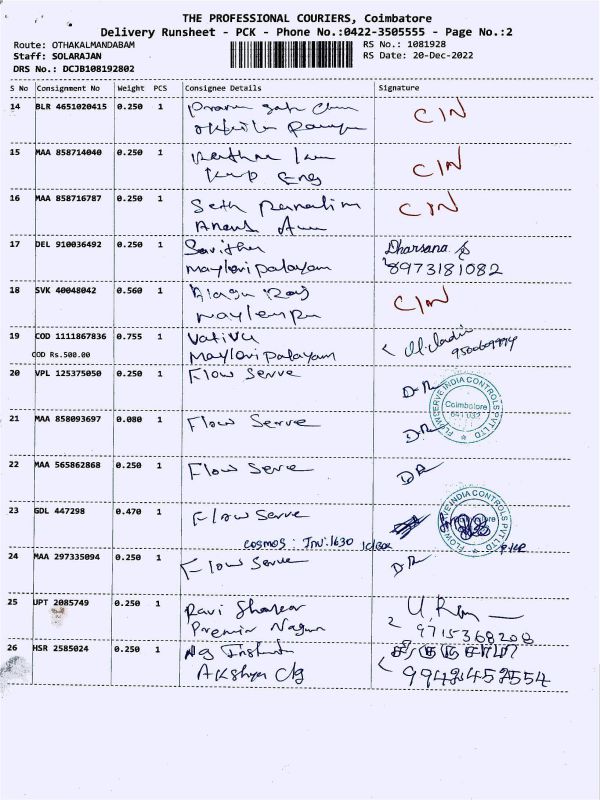 THE PROFESSIONAL COURIERS, Coimbatore
Delivery Runsheet - PCK - Phone No.:0422-3505555 - Page No.:2
Route: OTHAKALMANDABAM
RS No.: 1081928
Staff: SOLARAJAN
RS Date: 20-Dec-2022
DRS No.: DCJB108192802
S No Consignment No Weight PCS Consignee Details Signature
14 BLR 4651020415 0.250 1 CIN
15 MAA 858714040 0.250 1 CIN
Eng
16 MAA 858716787 0.250 1 Seth CIN
Anand
17 DEL 910036492 0.250 1 Savitha Dharsana
Mayleripalayam 8973181082
18 SVK 40048042 0.560 1 Alagu Raj CIN
19 COD 1111867836 0.755 1
COD Rs.500.00 Mayleripalayam
20 VPL 125375050 0.250 1 Flow Serve
FLOWSERVE INDIA CONTROLS PVT LTD
Coimbatore
641 032
21 MAA 858093697 0.080 1 Flow Serve
22 MAA 565862868 0.250 1 Flow Serve
23 GDL 447298 0.470 1 Flow Serve
FLOWSERVE INDIA CONTROLS PVT LTD
cosmos : Inv: 1630
24 MAA 297335094 0.250 1 Flow Serve
25 UPT 2085749 0.250 1 Ravi Shankar
Premier Nagar 9715368208
26 HSR 2585024 0.250 1
Akshya Clg 9942452554